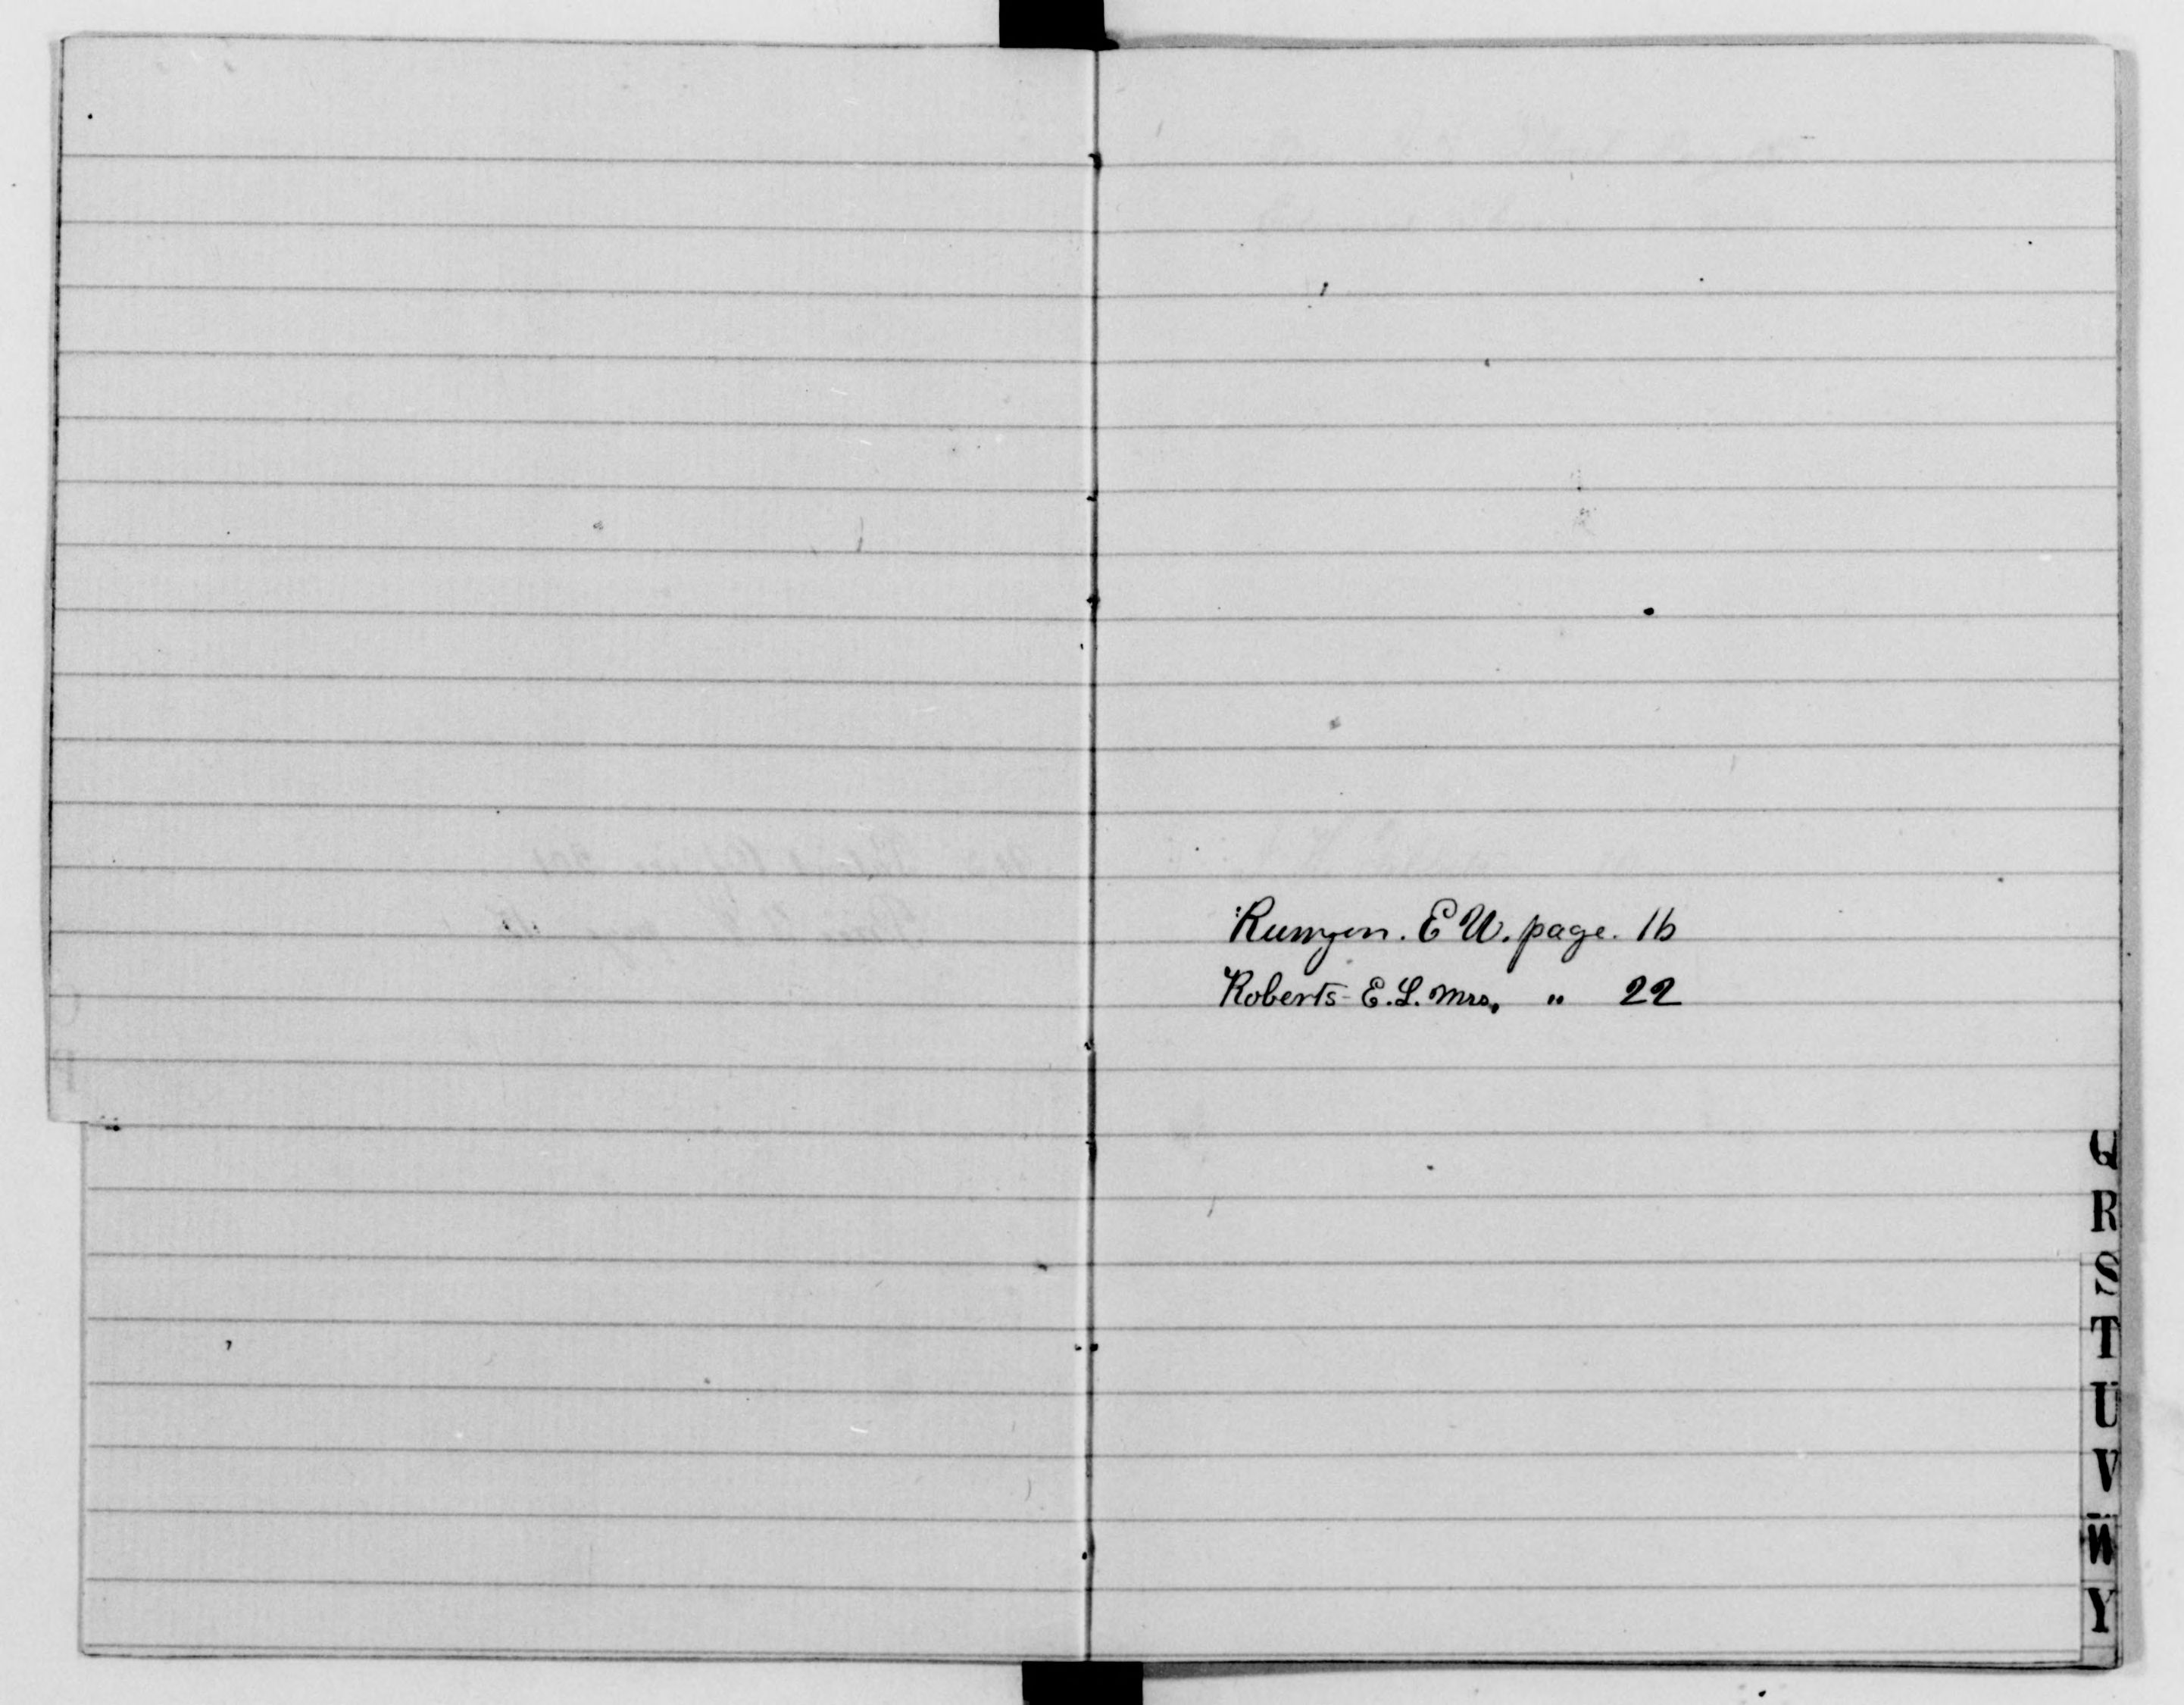 Runyon. E W. page. 16
Roberts - E. L. Mrs. " 22
Q
R
S
T
U
V
W
Y